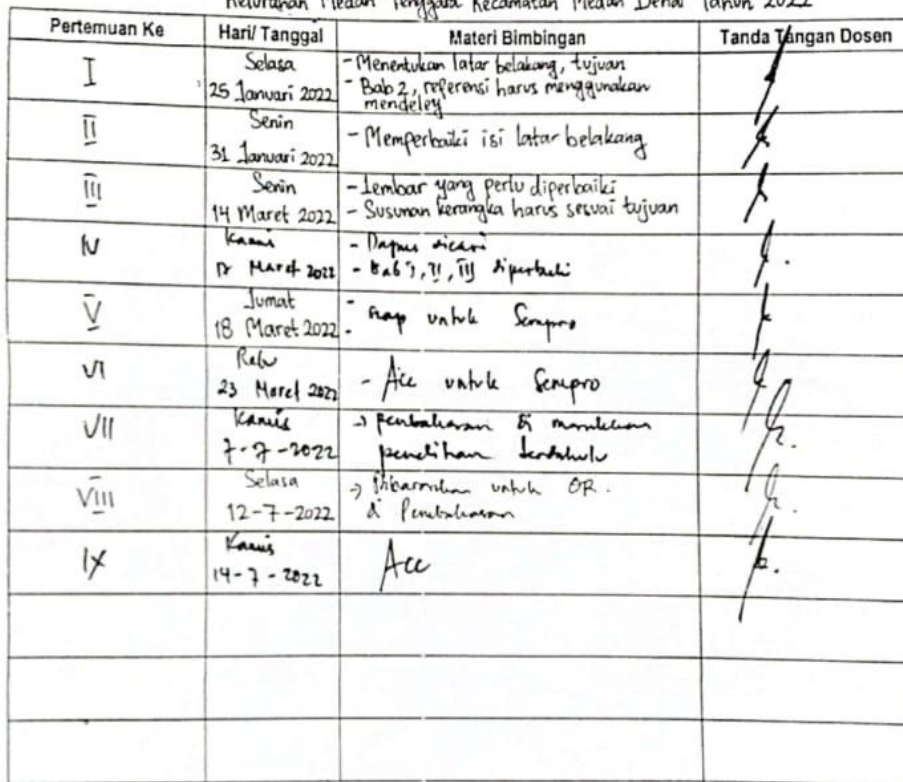 Kelurahan Medan Tenggara Kecamatan Medan Denai Tahun 2022
Pertemuan Ke Hari/ Tanggal Materi Bimbingan Tanda Tangan Dosen
I Selasa 25 Januari 2022 - Menentukan latar belakang, tujuan
- Bab 2, referensi harus menggunakan
mendeley
II Senin 31 Januari 2022 - Memperbaiki isi latar belakang
III Senin 14 Maret 2022 - Lembar yang perlu diperbaiki
- Susunan kerangka harus sesuai tujuan
IV Kamis Maret 2022 - Dapus dicari
- Bab I, II, III diperbaiki
V Jumat 18 Maret 2022 - siap untuk Sempro
VI Rabu 23 Maret 2022 - Acc untuk Sempro
VII Kamis 7-7-2022 → pembahasan di
penelitian terdahulu
VIII Selasa 12-7-2022 → untuk OR.
di Pembahasan
IX Kamis 14-7-2022 Acc